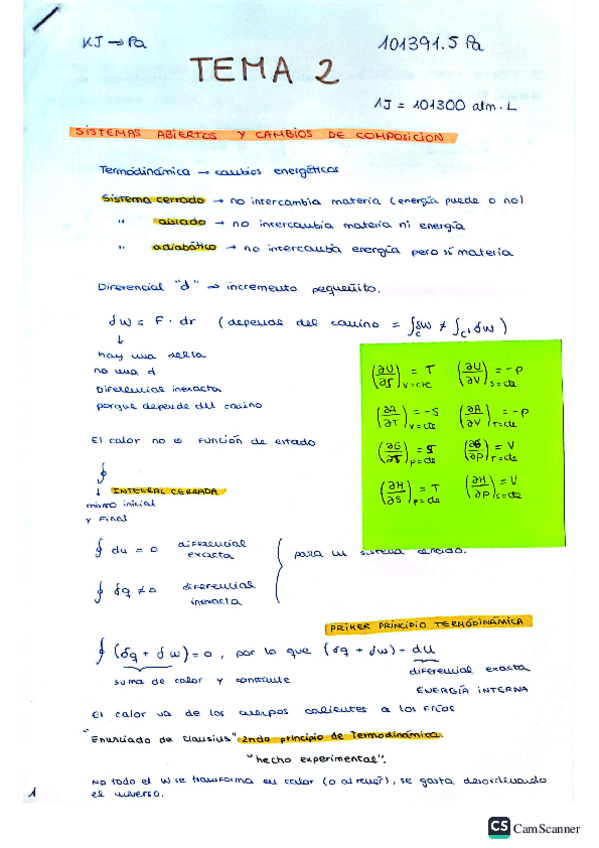 KJ → Pa
101391.5 Pa
TEMA 2
1J = 101300 atm·L
SISTEMAS ABIERTOS Y CAMBIOS DE COMPOSICION
Termodinámica → cambios energéticos
Sistema cerrado → no intercambia materia (energía puede o no)
" aislado → no intercambia materia ni energía
" adiabático → no intercambia energía pero sí materia
Diferencial "d" → incremento pequeñito.
δw = F · dr (depende del camino = ∫c δw ≠ ∫c' δw)
↓
hay una delta
no una d
Diferencial inexacta
porque depende del camino
El calor no is función de estado
∮
↓ INTEGRAL CERRADA
mismo inicial
y final
∮ du = 0 diferencial exacta
∮ δq ≠ 0 diferencial inexacta
para un sistema cerrado.
(∂U/∂S)V=cte = T (∂U/∂V)S=cte = -P
(∂A/∂T)V=cte = -S (∂A/∂V)T=cte = -P
(∂G/∂T)P=cte = S (∂G/∂P)T=cte = V
(∂H/∂S)P=cte = T (∂H/∂P)S=cte = V
PRIMER PRINCIPIO TERMODINÁMICA
∮ (δq + δw) = 0, por lo que (δq + δw) - dU
suma de calor y
diferencial exacta
ENERGÍA INTERNA
El calor va de los cuerpos calientes a los fríos
"Enunciado de Clausius" 2ndo principio de Termodinámica.
"hecho experimental".
No todo el W se transforma en calor (o al revés), se gasta desordenando
el universo.
1
CS CamScanner